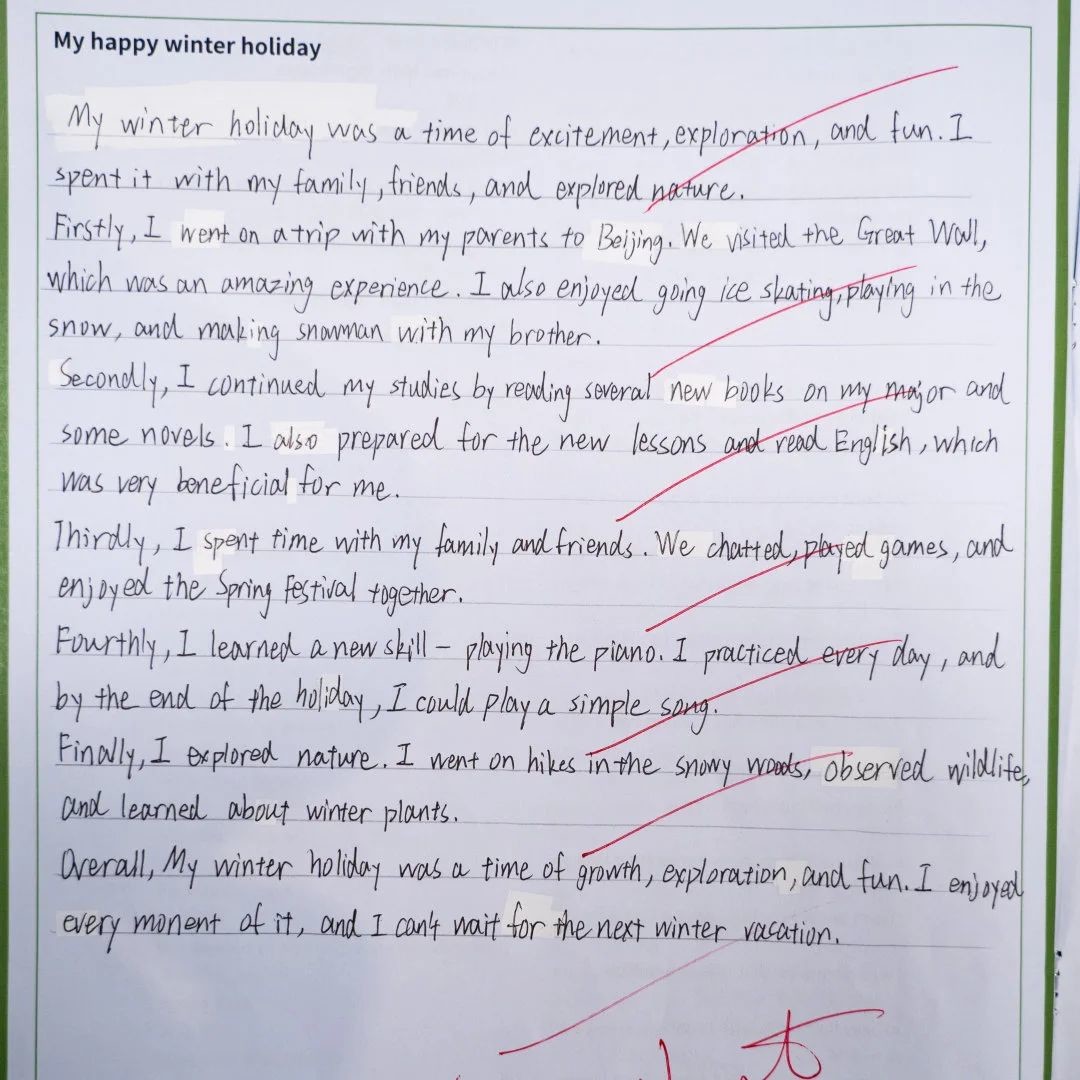 My happy winter holiday
My winter holiday was a time of excitement, exploration, and fun. I
spent it with my family, friends, and explored nature.
Firstly, I went on a trip with my parents to Beijing. We visited the Great Wall,
which was an amazing experience. I also enjoyed going ice skating, playing in the
snow, and making snowman with my brother.
Secondly, I continued my studies by reading several new books on my major and
some novels. I also prepared for the new lessons and read English, which
was very beneficial for me.
Thirdly, I spent time with my family and friends. We chatted, played games, and
enjoyed the Spring Festival together.
Fourthly, I learned a new skill – playing the piano. I practiced every day, and
by the end of the holiday, I could play a simple song.
Finally, I explored nature. I went on hikes in the snowy woods, observed wildlife,
and learned about winter plants.
Overall, My winter holiday was a time of growth, exploration, and fun. I enjoyed
every monent of it, and I can't wait for the next winter vacation.